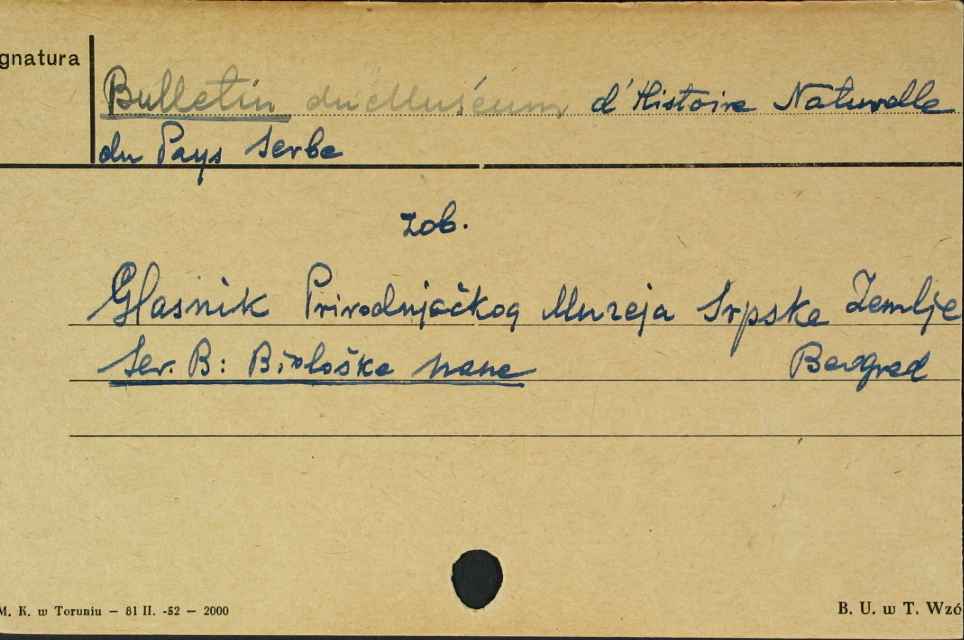 gnatura
Bulletin du Muséum d'Histoire Naturelle
du Pays Serbe
zob.
Glasnik Prirodnjačkog Muzeja Srpske Zemlje
Ser. B: Biološke nane Beograd
M. K. w Toruniu — 81 II. -52 — 2000
B. U. w T. Wzó